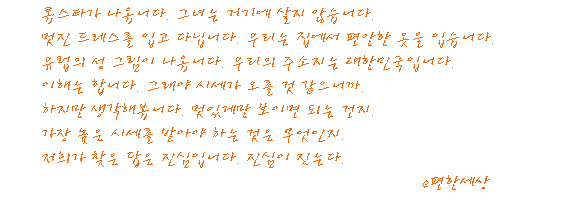 톱스타가 나옵니다. 그녀는 거기에 살지 않습니다.
멋진 드레스를 입고 다닙니다. 우리는 집에서 편안한 옷을 입습니다.
유럽의 성 그림이 나옵니다. 우리의 주소지는 대한민국입니다.
이해는 합니다. 그래야 시세가 오를 것 같으니까.
하지만 생각해봅니다. 멋있게만 보이면 되는 건지.
가장 높은 시세를 받아야 하는 것은 무엇인지.
저희가 찾은 답은 진심입니다. 진심이 짓는다.
e편한세상